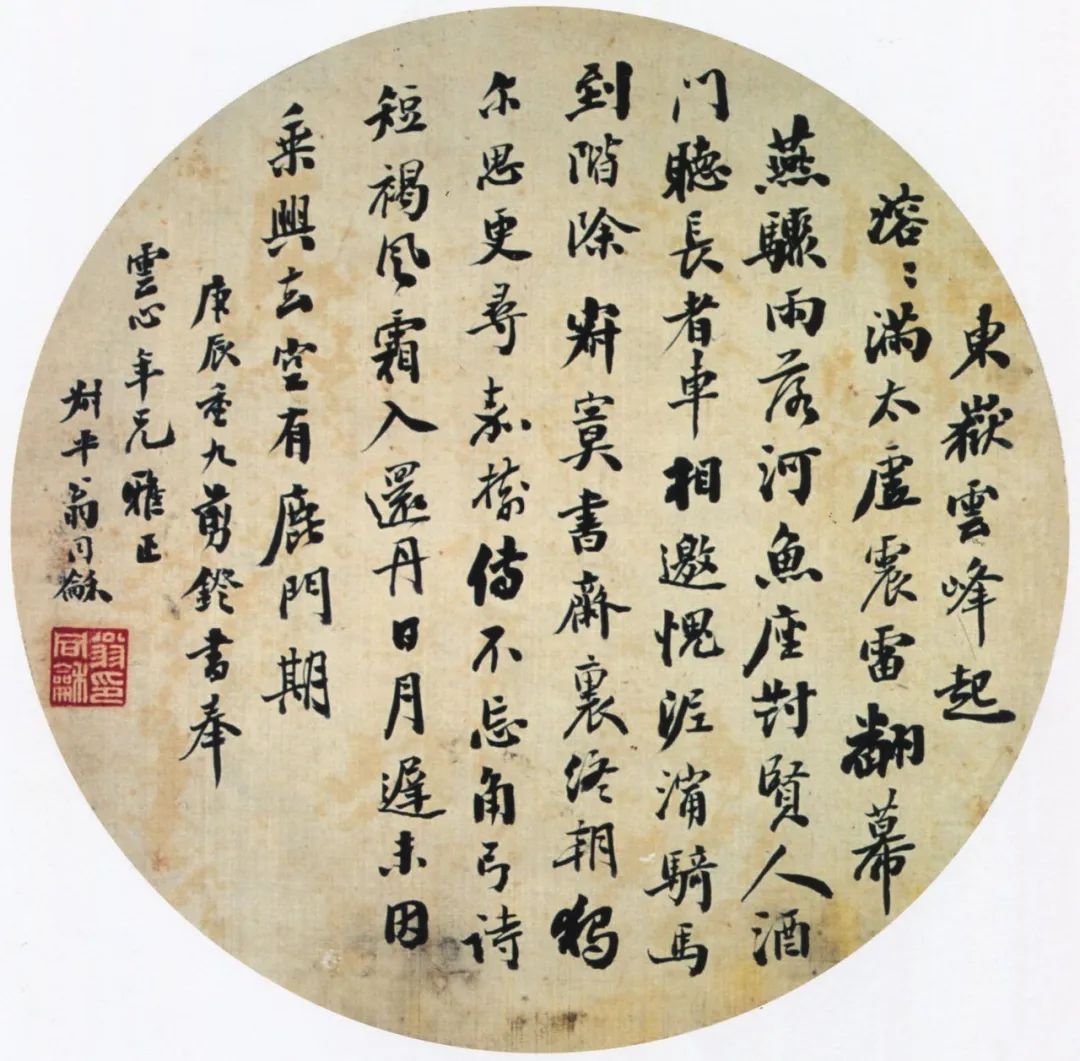 東嶽雲峰起
溶〻滿太虛震雷翻幕
燕驟雨落河魚座對賢人酒
门聽長者車相邀愧泥濘騎馬
到階除寂寞書齋裏終朝獨
尔思更尋嘉樹傳不忘角弓诗
短褐风霜入還丹日月遲未因
乘興去空有鹿門期
庚辰重九剪鐙書奉
雲心年兄雅正
叔平翁同龢
翁印同龢